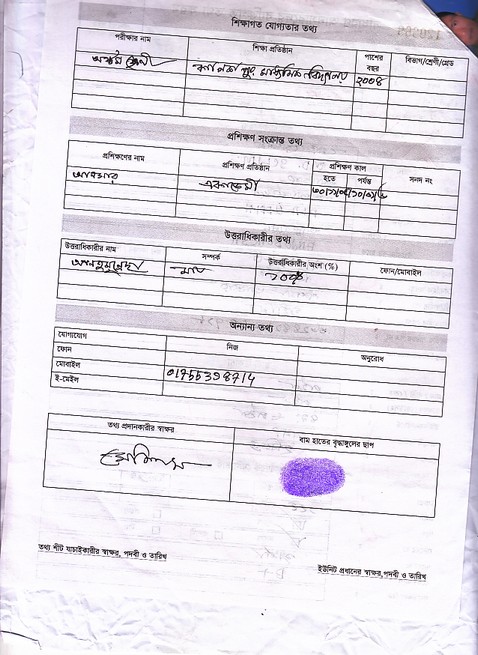 শিক্ষাগত যোগ্যতার তথ্য
পরীক্ষার নাম শিক্ষা প্রতিষ্ঠান পাশের বছর বিভাগ/শ্রেণী/গ্রেড
অষ্টম শ্রেণী মাধ্যমিক বিদ্যালয় ২০০৪
প্রশিক্ষণ সংক্রান্ত তথ্য
প্রশিক্ষণের নাম প্রশিক্ষণ প্রতিষ্ঠান প্রশিক্ষণ কাল সনদ নং
হতে পর্যন্ত
আনসার একাডেমী
উত্তরাধিকারীর তথ্য
উত্তরাধিকারীর নাম সম্পর্ক উত্তরাধিকারীর অংশ (%) ফোন/মোবাইল
মাতা
অন্যান্য তথ্য
যোগাযোগ নিজ অনুরোধ
ফোন
মোবাইল 01755398714
ই-মেইল
তথ্য প্রদানকারীর স্বাক্ষর বাম হাতের বৃদ্ধাঙ্গুলের ছাপ
তথ্য শীট যাচাইকারীর স্বাক্ষর, পদবী ও তারিখ
ইউনিট প্রধানের স্বাক্ষর,পদবী ও তারিখ